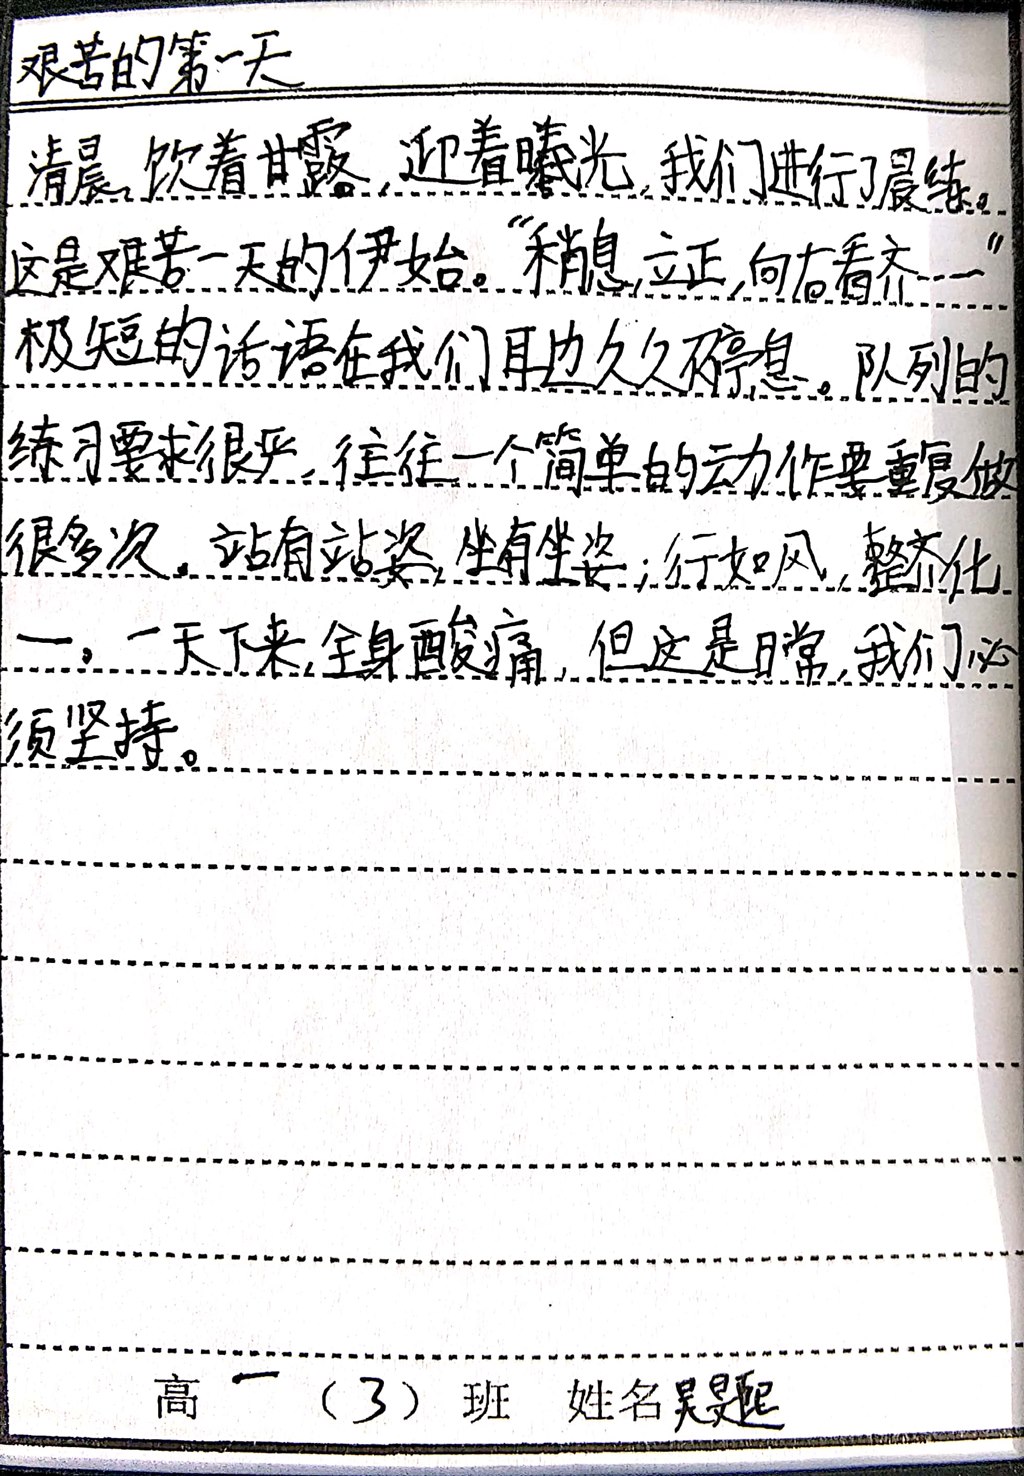 艰苦的第一天
清晨,饮着甘露,迎着曦光,我们进行了晨练。
这是艰苦一天的伊始。“稍息,立正,向右看齐……”
极短的话语在我们耳边久久不停息。队列的
练习要求很严,往往一个简单的动作要重复做
很多次。站有站姿,坐有坐姿;行如风,整齐化
一。一天下来,全身酸痛,但这是日常,我们必
须坚持。
高一(3)班 姓名吴